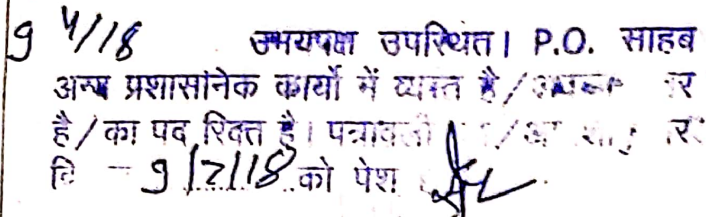 9 4/18 उभयपक्ष उपस्थित। P.O. साहब
अन्य प्रशासनिक कार्यो में व्यस्त है/ पर
है/का पद रिक्त है। पत्रावली
दि - 9/7/18 को पेश